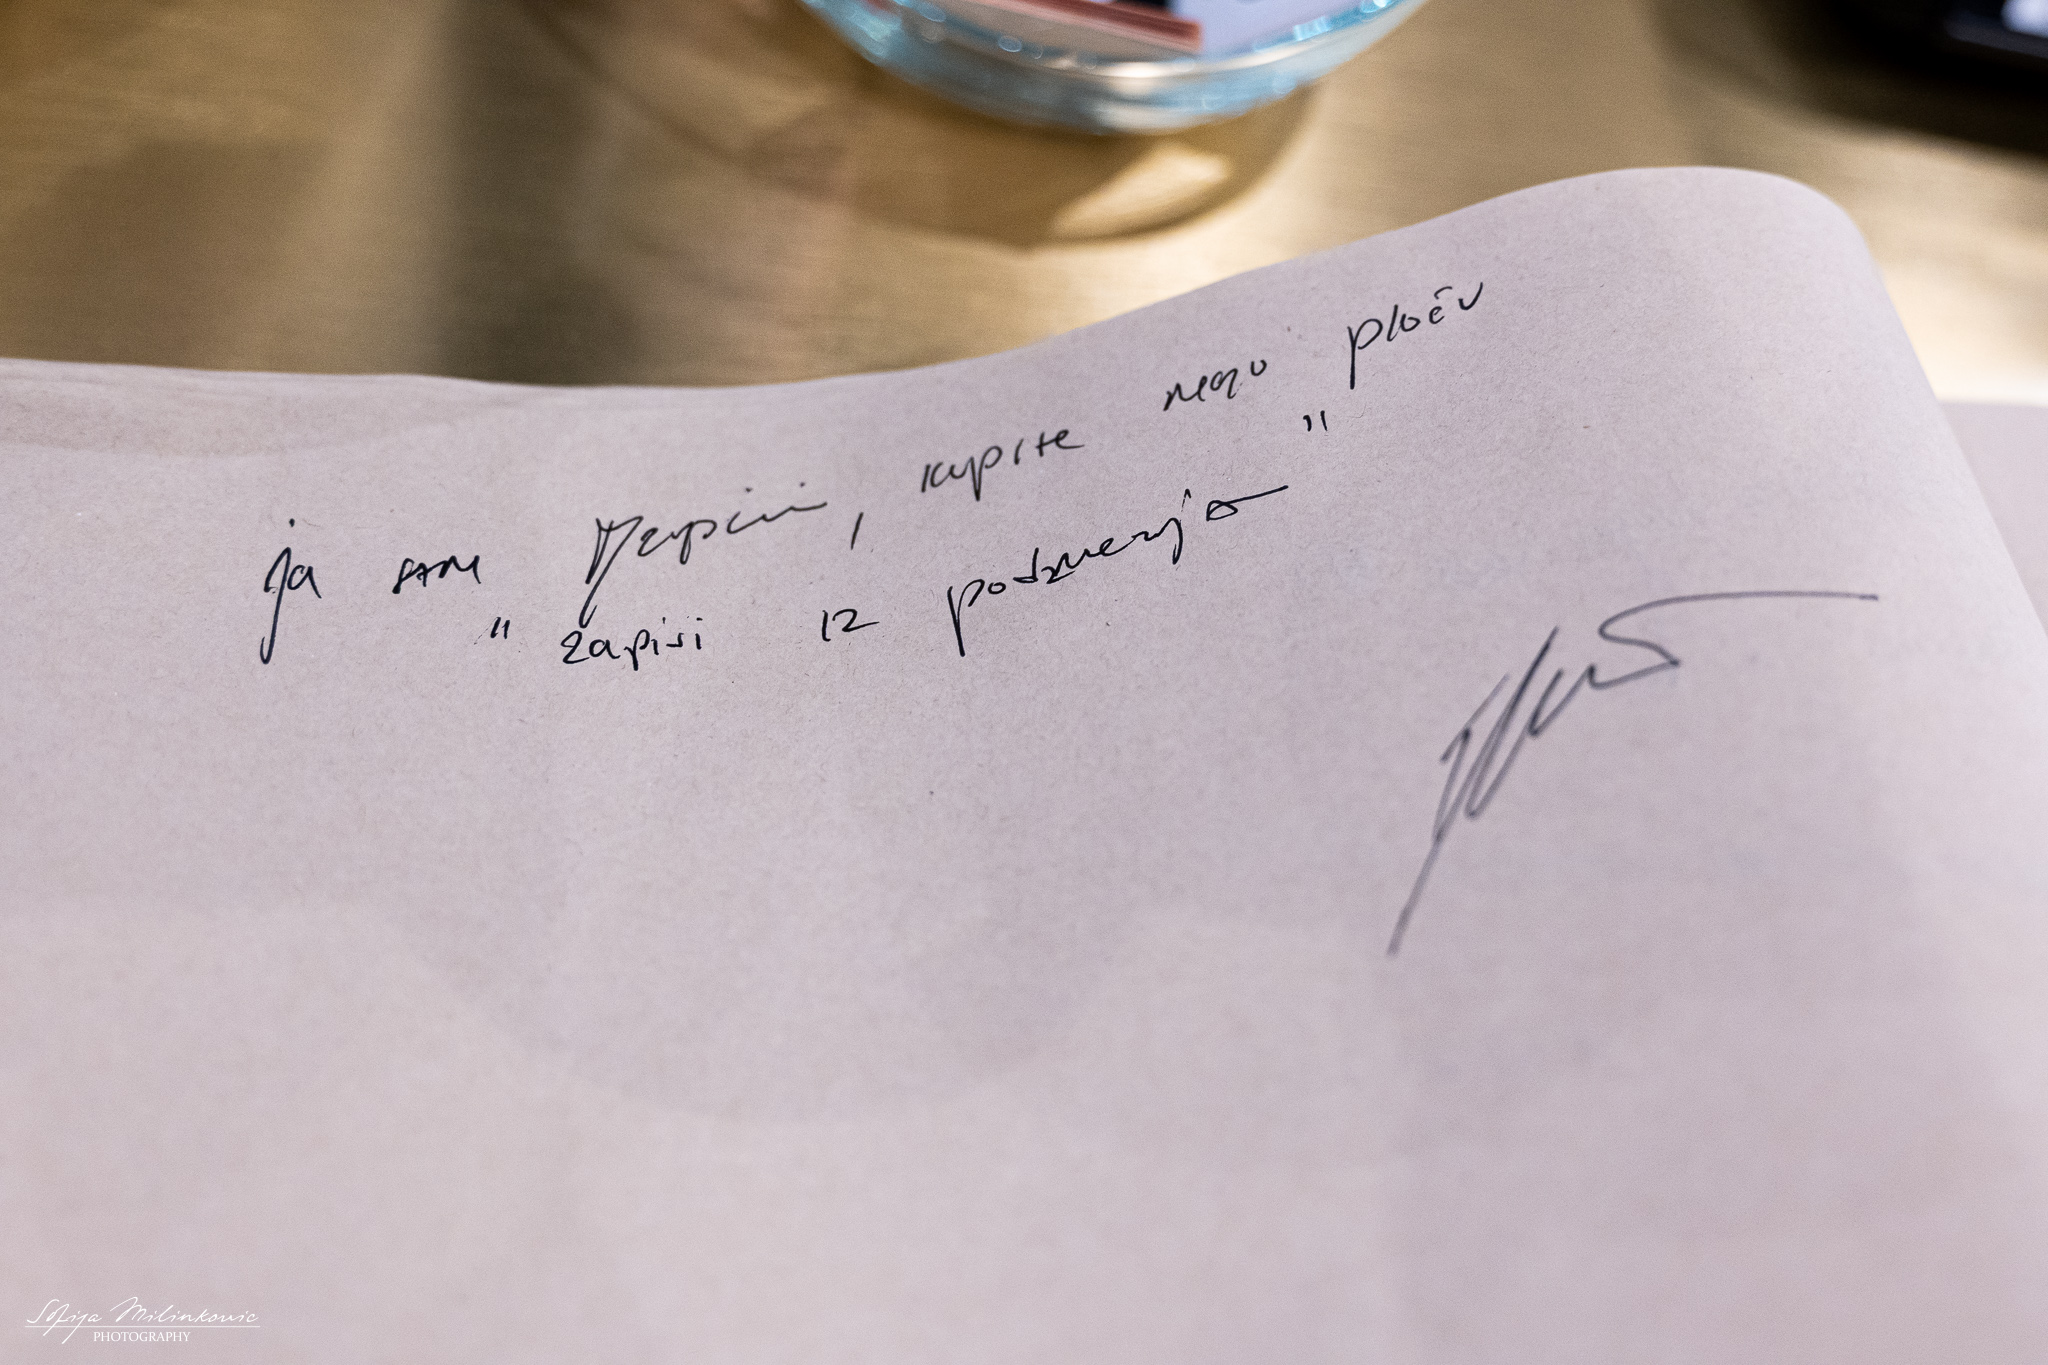 ja sam , kupite moju ploču
" Zapisi iz podzemlja "
Sofija Milinkovic
PHOTOGRAPHY